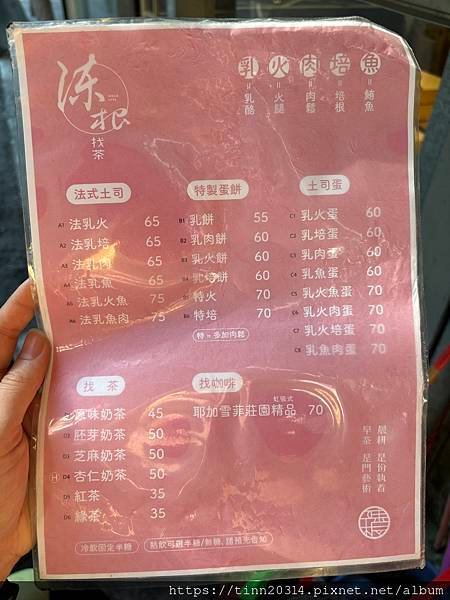 涑根
找茶
乳 火 肉 培 魚
乳酪 火腿 肉鬆 培根 鮪魚
法式土司
A1 法乳火 65
A2 法乳培 65
A3 法乳肉 65
A4 法乳魚 65
A5 法乳火魚 75
A6 法乳魚肉 75
特製蛋餅
B1 乳餅 55
B2 乳肉餅 60
B3 乳火餅 60
乳培餅 60
特火 70
B6 特培 70
特=多加肉鬆
土司蛋
C1 乳火蛋 60
C2 乳培蛋 60
C3 乳肉蛋 60
C4 乳魚蛋 60
C5 乳火魚蛋 70
C6 乳火肉蛋 70
C7 乳火培蛋 70
C8 乳魚肉蛋 70
找茶
原味奶茶 45
D2 胚芽奶茶 50
D3 芝麻奶茶 50
H D4 杏仁奶茶 50
D5 紅茶 35
D6 綠茶 35
冷飲固定半糖
熱飲可選半糖/無糖，請預先告知
找咖啡
虹吸式
耶加雪菲莊園精品 70
晨耕 是份執着
早茶 是門藝術
https://tinn20314.pixnet.net/album